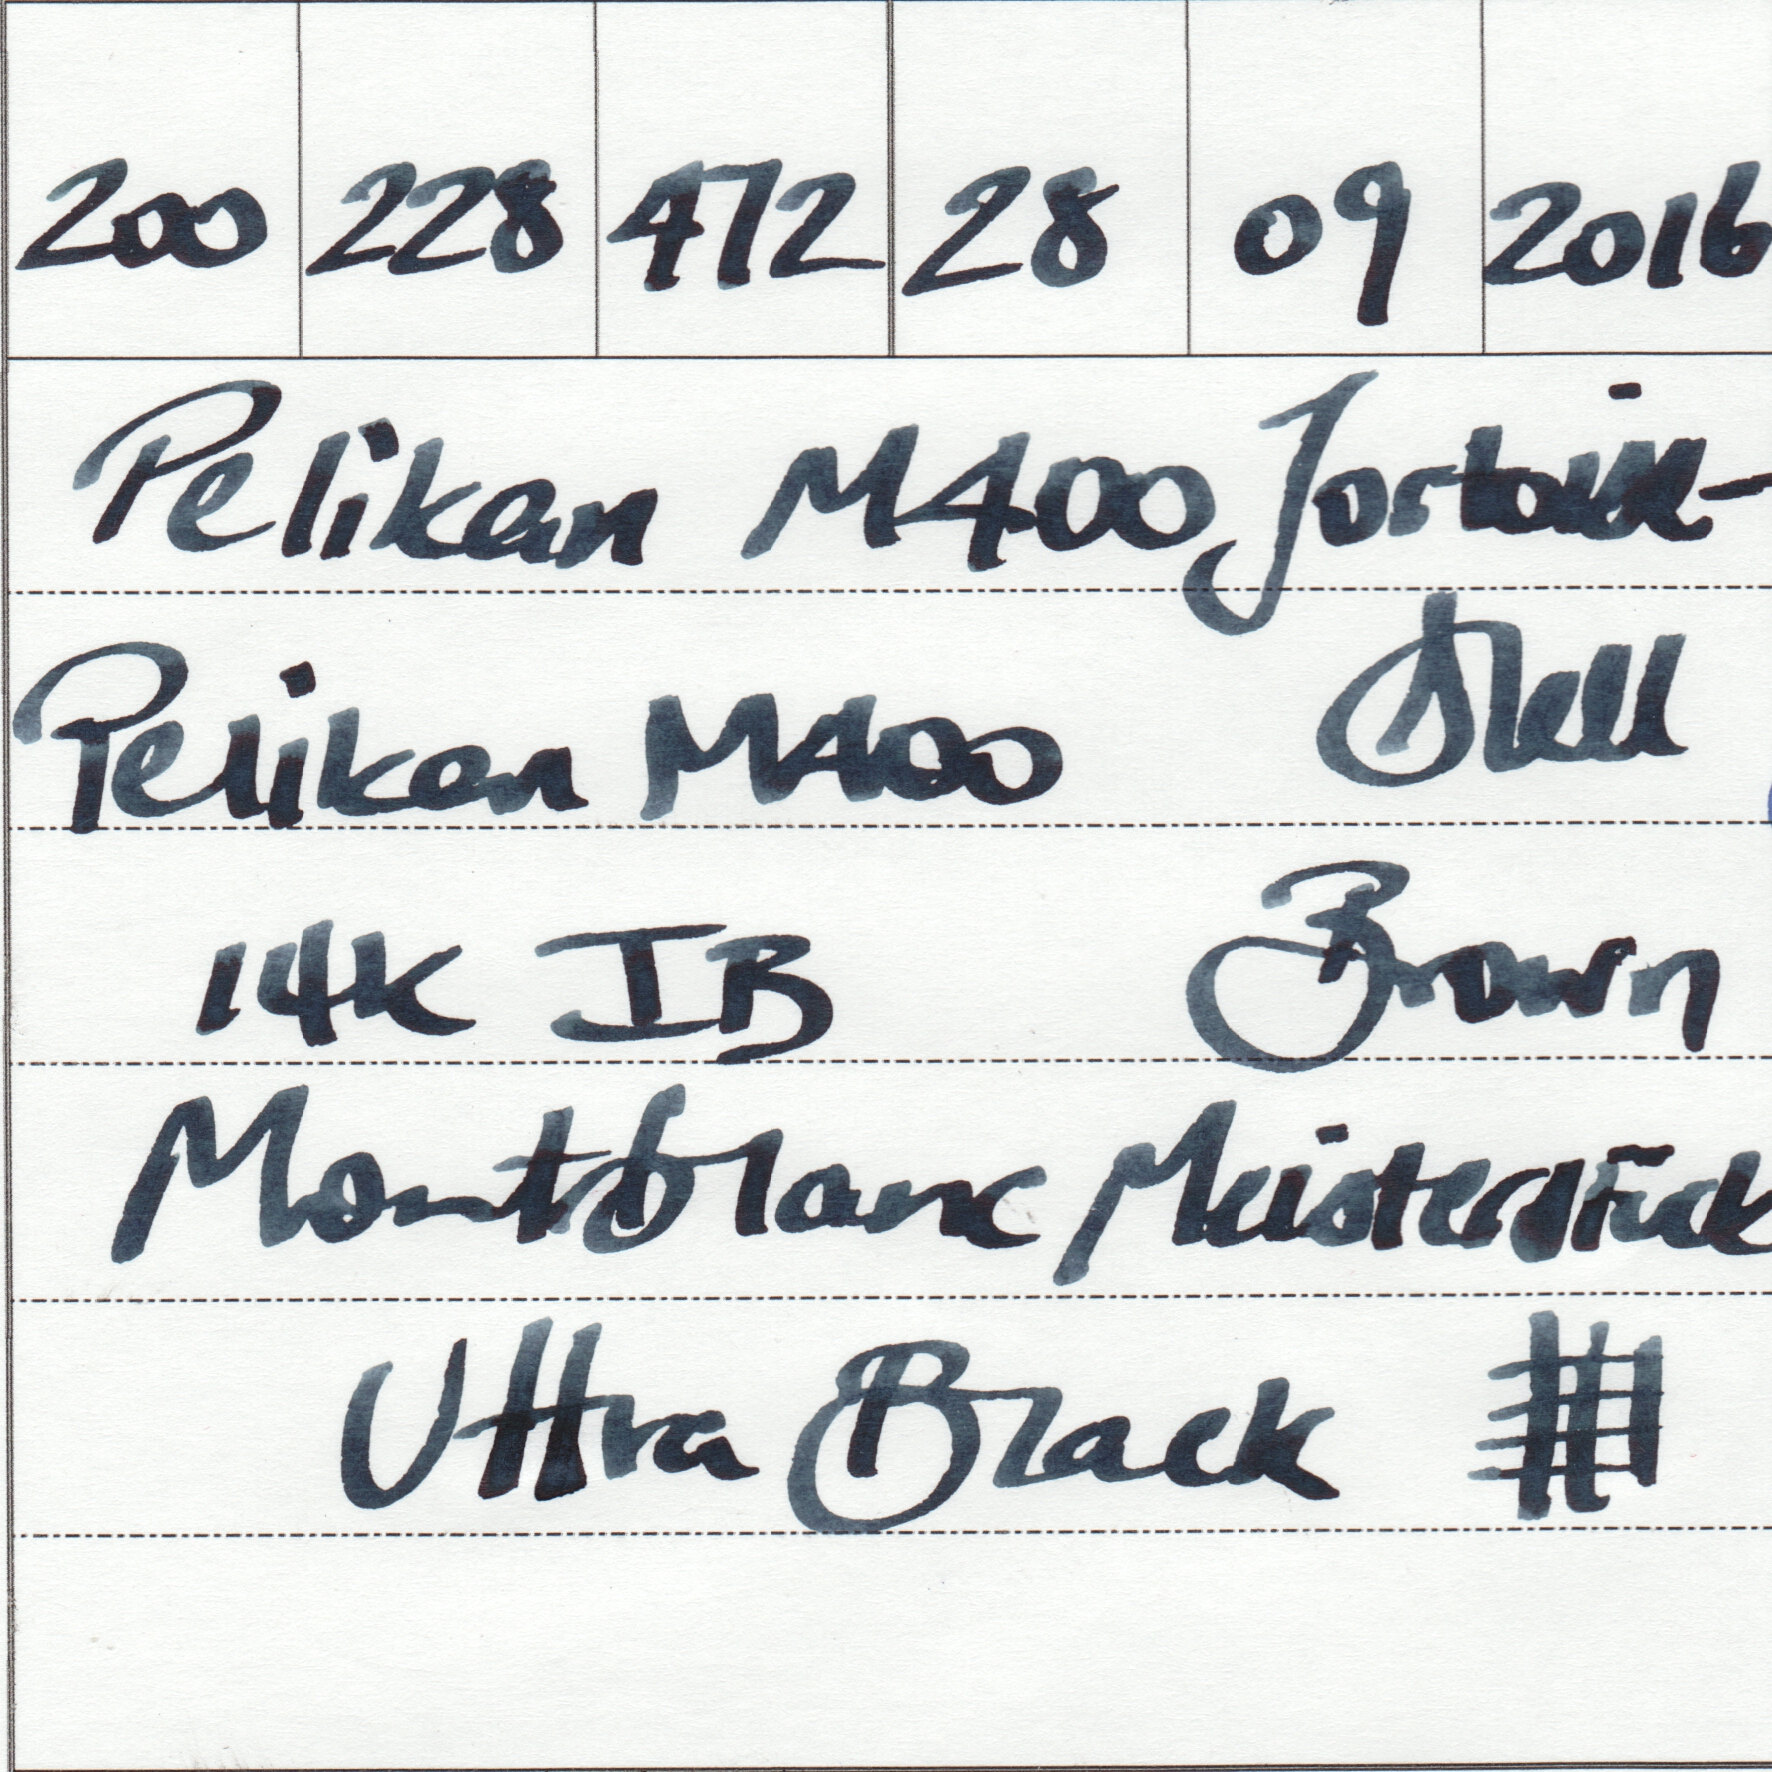 200 228 472 28 09 2016
Pelikan M400 Tortoise-
Pelikan M400 Shell
14K IB Brown
Montblanc Meisterstück
Ultra Black